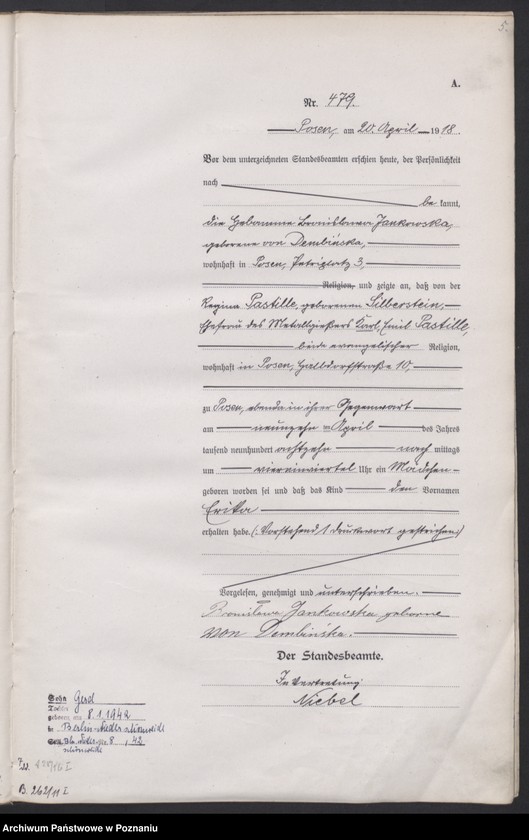 5.
A.
Nr. 479.
Posen, am 20. April 1918.
Vor dem unterzeichneten Standesbeamten erschien heute, der Persönlichkeit
nach
be kannt,
die Hebamme Bronislawa Jankowska,
geborene von Dembińska,
wohnhaft in Posen, Petriplatz 3,
Religion, und zeigte an, daß von der
Regina Pastille, geborenen Silberstein,
Ehefrau des Metallgießers Karl Emil Pastille,
beide evangelischer Religion,
wohnhaft in Posen, 10,
zu Posen, ebenda in ihrer Gegenwart
am neunzehn April des Jahres
tausend neunhundert achtzehn nach mittags
um viereinviertel Uhr ein Mädchen
geboren worden sei und daß das Kind den Vornamen
Erika
erhalten habe. (: Vorstehend 1 Druckwort gestrichen :)
Vorgelesen, genehmigt und unterschrieben.
Bronislawa Jankowska geborne
von Dembińska.
Der Standesbeamte.
In Vertretung
Niebel
Sohn Gerd
Tochter
geboren am 8.1.1942
in Berlin-
8 , 42
B. 262/11 I
Archiwum Państwowe w Poznaniu